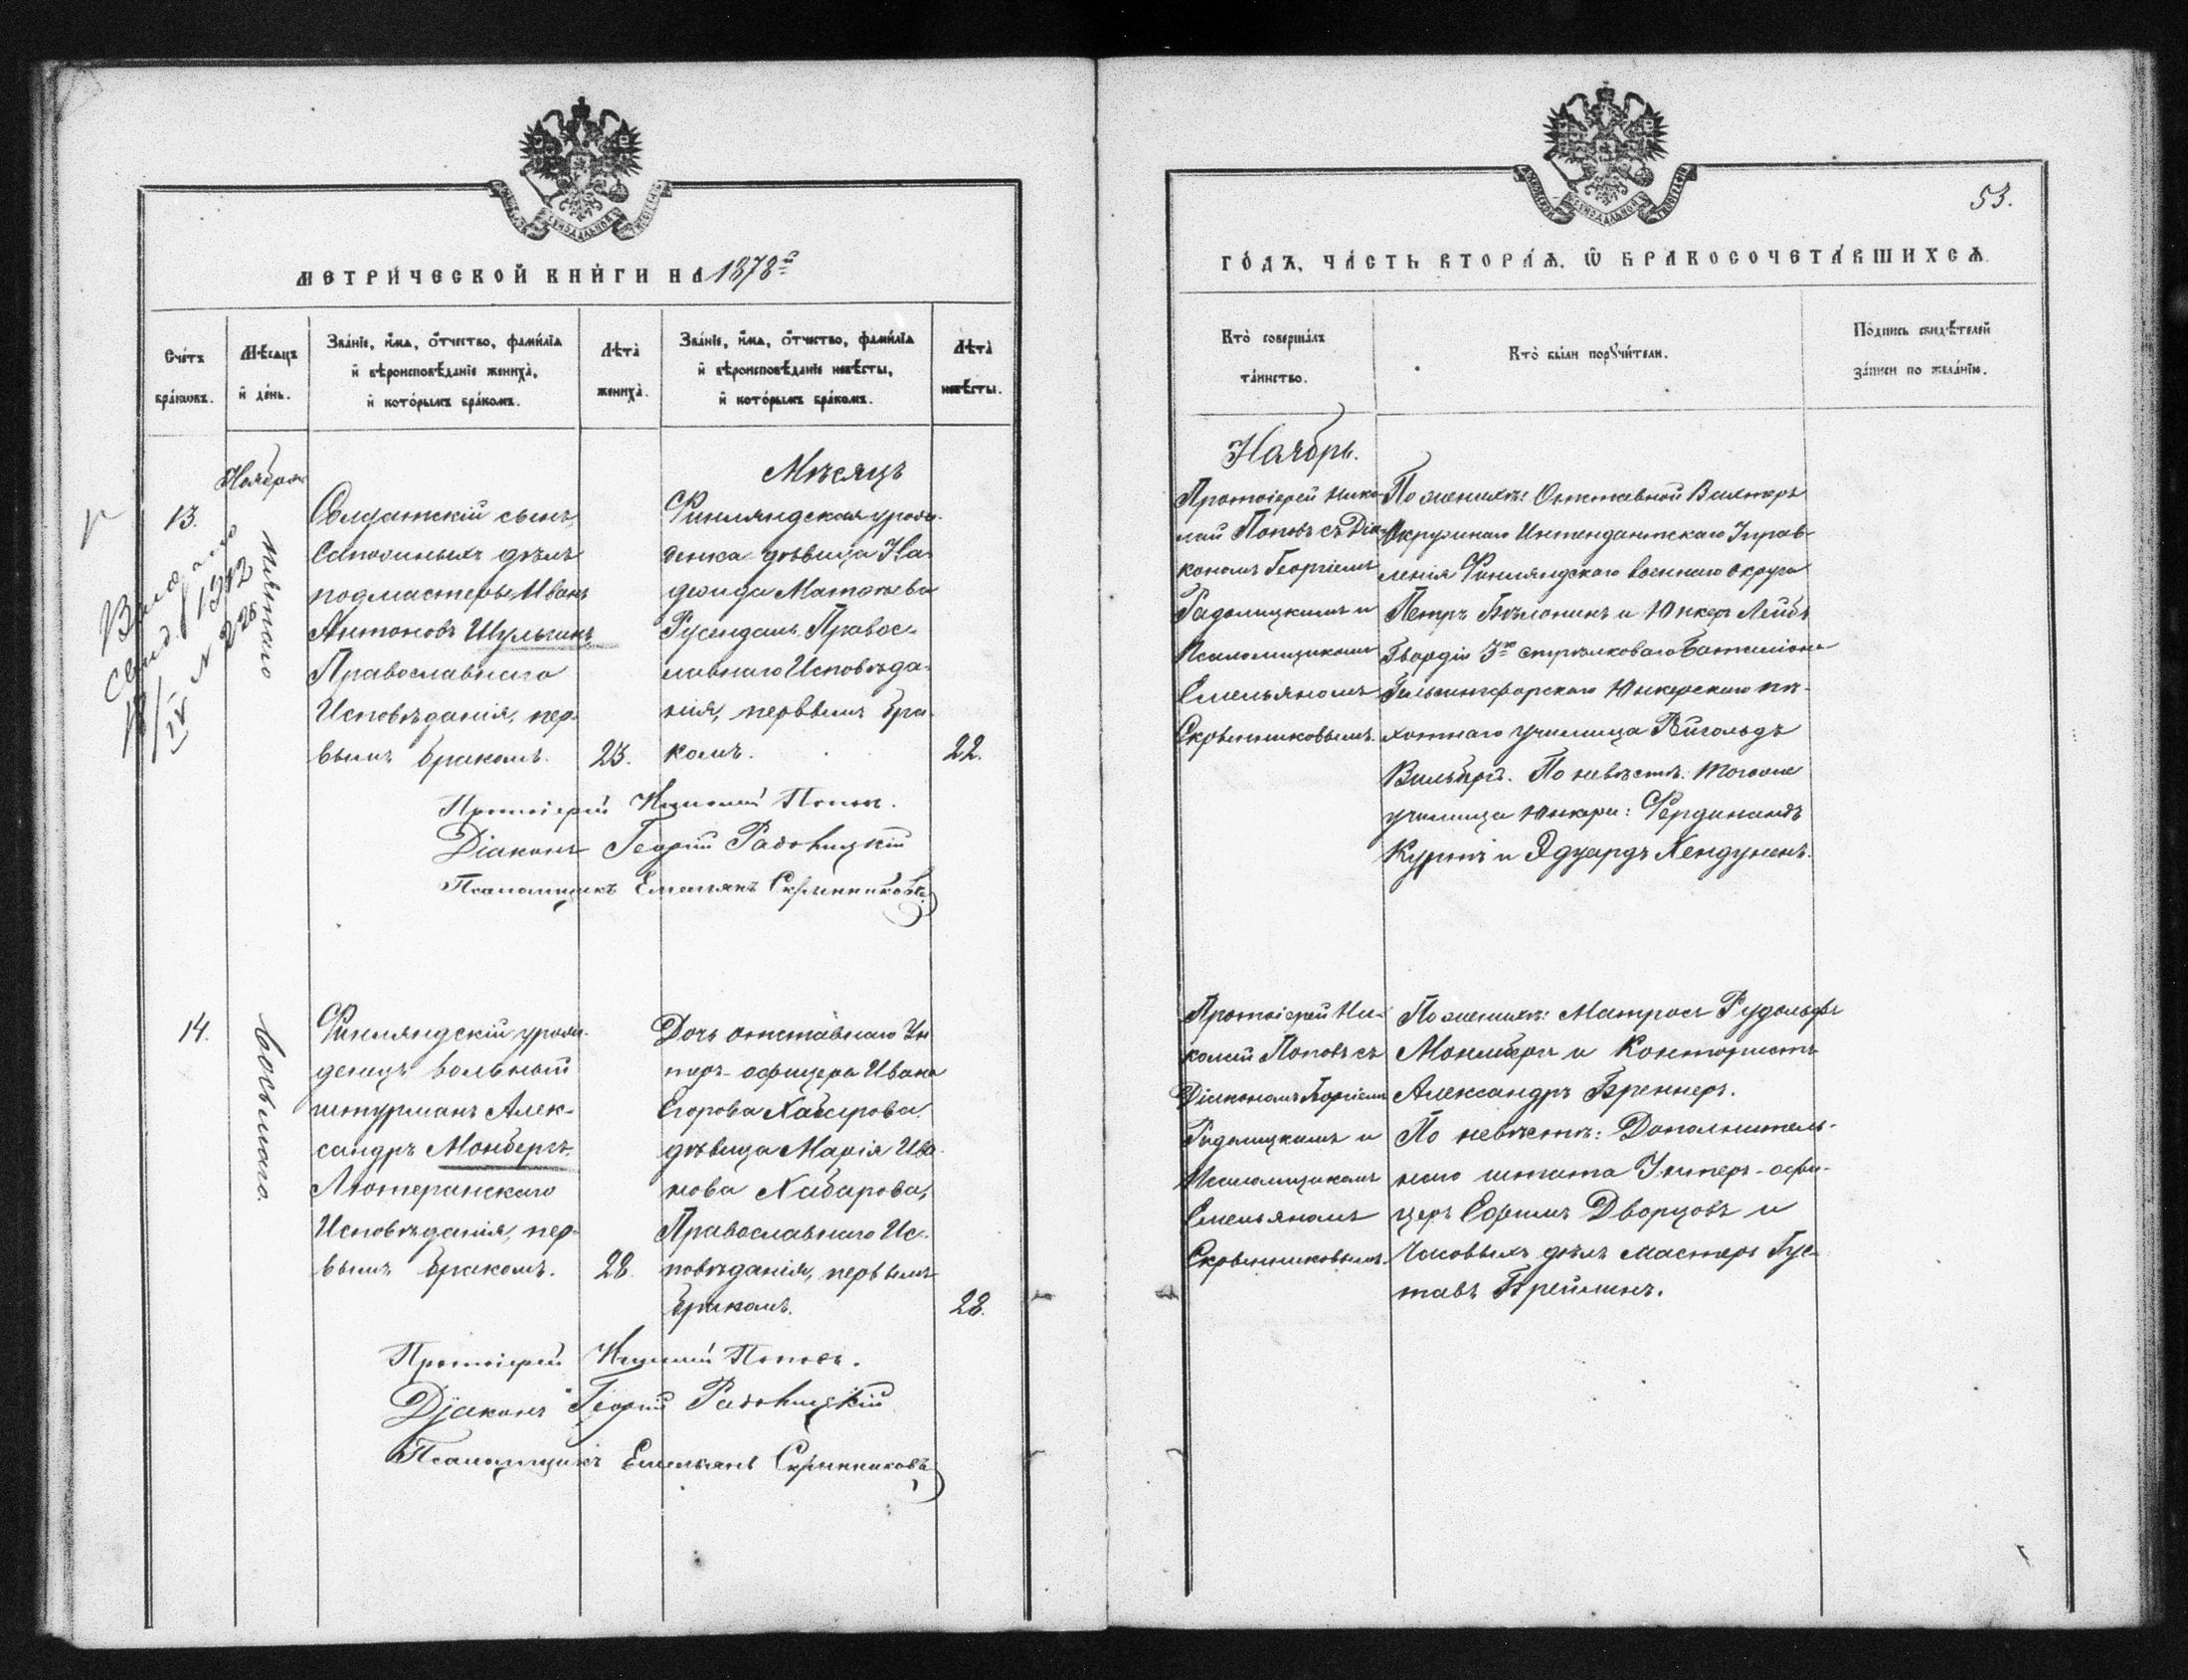 МЕТРИ́ЧЕСКОЙ КНИ́ГИ НА 1878й
Сче́тъ
бра́ковъ.
Мѣ́сяцъ
и҆ де́нь.
Зва́нїе, и҆́мѧ, о҆́тчество, фами́лїа
и҆ вѣроисповѣ́данїе жениха̀,
и҆ кото́рымъ бра́комъ.
Лѣта̀
жениха̀.
Зва́нїе, и҆́мѧ, о҆́тчество, фами́лїа
и҆ вѣроисповѣ́данїе невѣ́сты,
и҆ кото́рымъ бра́комъ.
Лѣта̀
невѣ́сты.
Мѣсяцъ
Выдано
свид. 1912
18/IV № 226
13.
Ноября
пятаго
Солдатскій сынъ,
сапожныхъ дѣлъ
подмастерье Иванъ
Антоновъ Шульгинъ,
Православнаго
Исповѣданія, пер-
вымъ бракомъ.
23.
Финляндская уроже-
денка дѣвица На-
дежда Матвѣева
Русендаль, Правос-
лавнаго Исповѣда-
нія, первымъ бра-
комъ.
22.
Протоіерей Николай Поповъ.
Діаконъ Георгій Радолицкій
Псаломщикъ Емельянъ Скрынниковъ
14.
восьмаго.
Финляндскій уроже-
денецъ вольный
штурманъ Алек-
сандръ Монбергъ,
Лютеранскаго
Исповѣданія, пер-
вымъ бракомъ.
28.
Дочь отставнаго Ун-
теръ-офицера Ивана
Егорова Хабарова,
дѣвица Марія Ива-
нова Хабарова,
Православнаго Ис-
повѣданія, первымъ
бракомъ.
28.
Протоіерей Николай Поповъ.
Діаконъ Георгій Радолицкій
Псаломщикъ Емельянъ Скрынниковъ
53.
ГО́ДЪ, ЧА́СТЬ ВТОРА́Ѧ, Ѽ БРАКОСОЧЕТА́ВШИХСѦ
Кто̀ соверша́лъ
та́инство.
Кто̀ бы́ли порꙋчи́тели.
По́дпись свидѣ́телей
за́писи по жела́нїю.
Ноябрь.
Протоіерей Нико-
лай Поповъ съ Діа-
кономъ Георгіемъ
Радолицкимъ и
Псаломщикомъ
Емельяномъ
Скрынниковымъ.
По женихѣ: Отставной Вахтеръ
Окружнаго Интендантскаго Управ-
ленія Финляндскаго военнаго округа
Петръ Бѣлонинъ и Юнкеръ Лейбъ
Гвардіи 3го стрѣлковаго Баталіона
Гельсингфорскаго Юнкерскаго пѣ-
хотнаго училища
Вильбергъ. По невѣстѣ: тогоже
училища Юнкера: Фердинандъ
и Эдуардъ
Протоіерей Ни-
колай Поповъ съ
Діакономъ Георгіемъ
Радолицкимъ и
Псаломщикомъ
Емельяномъ
Скрынниковымъ.
По женихѣ: Матросъ Рудольфъ
Монбергъ и Контористъ
Александръ Бреннеръ.
По невѣстѣ: Дополнитель-
наго штата Унтеръ-офи-
церъ Ефимъ Дворцовъ и
Часовыхъ дѣлъ мастеръ Гус-
тавъ Брейлинъ.